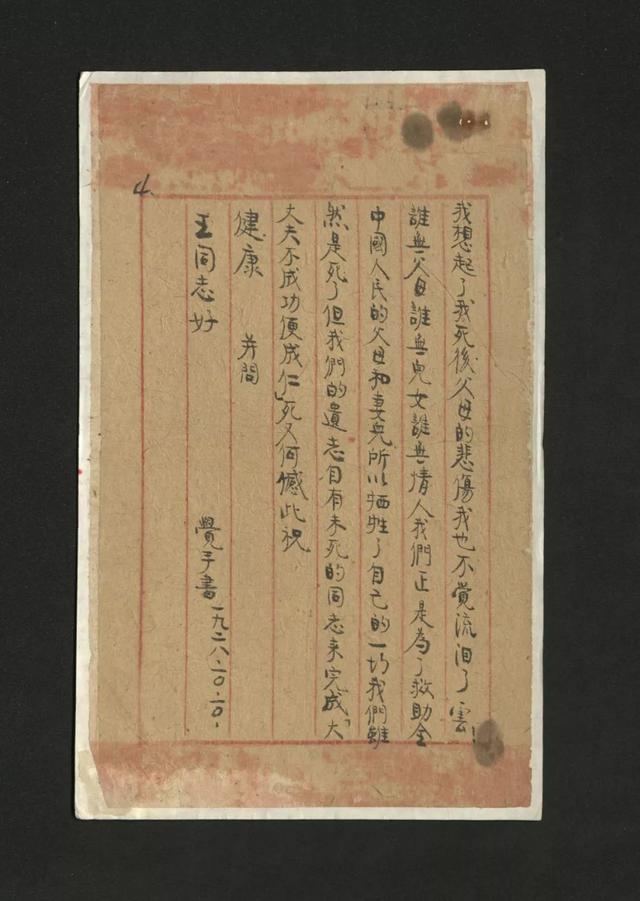 4.
我想起了我死後父母的悲傷我也不覺流泪了雲!
誰無父母誰無兒女誰無情人我們正是為了救助全
中國人民的父母和妻兒所以牺牲了自己的一切我們雖
然是死了但我們的遺志自有未死的同志来完成「大
丈夫不成功便成仁」死又何憾此祝
健康　并問
王同志好
覺予書一九二八.一〇.一〇.